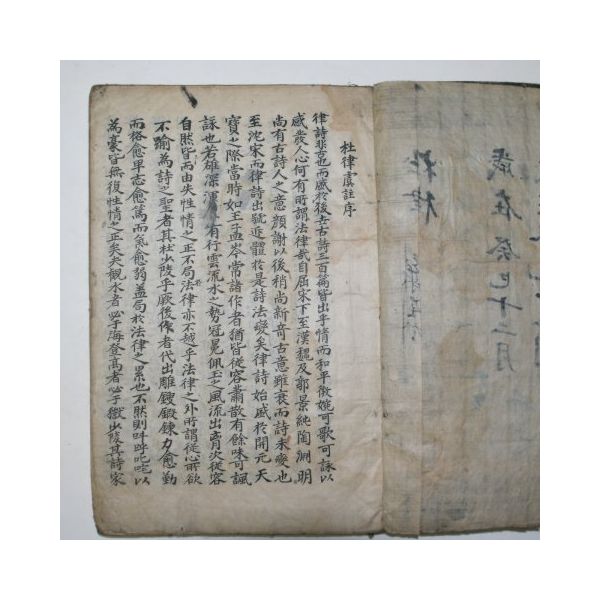 歲在癸巳十二月
杜律
杜律虞註序
律詩非古也而盛於後世古詩三百篇皆出乎情而和平微婉可歌可詠以
感發人心何有所謂法律哉自屈宋下至漢魏及郭景純陶淵明
尚有古詩人之意顔謝以後稍尚新奇古意雖衰而詩未變也
至沈宋而律詩出號近體於是詩法變矣律詩始盛於開元天
寶之際當時如王孟岑常諸作者猶皆從容蕭散有餘味可諷
詠也若雄深渾有行雲流水之勢冠冕佩玉之風流出胷次從容
自然皆而由夫性情之正不局於法律亦不越乎法律之外所謂從心所欲
不踰為詩之聖者其杜少陵乎厥後作者代出雕鎪鍛鍊力愈勤
而格愈卑志愈篤而氣愈弱盖局於法律之累也不然則叫呼叱咤以
為豪皆無復性情之正矣夫觀水者必于海登高者必于嶽少陵其詩家